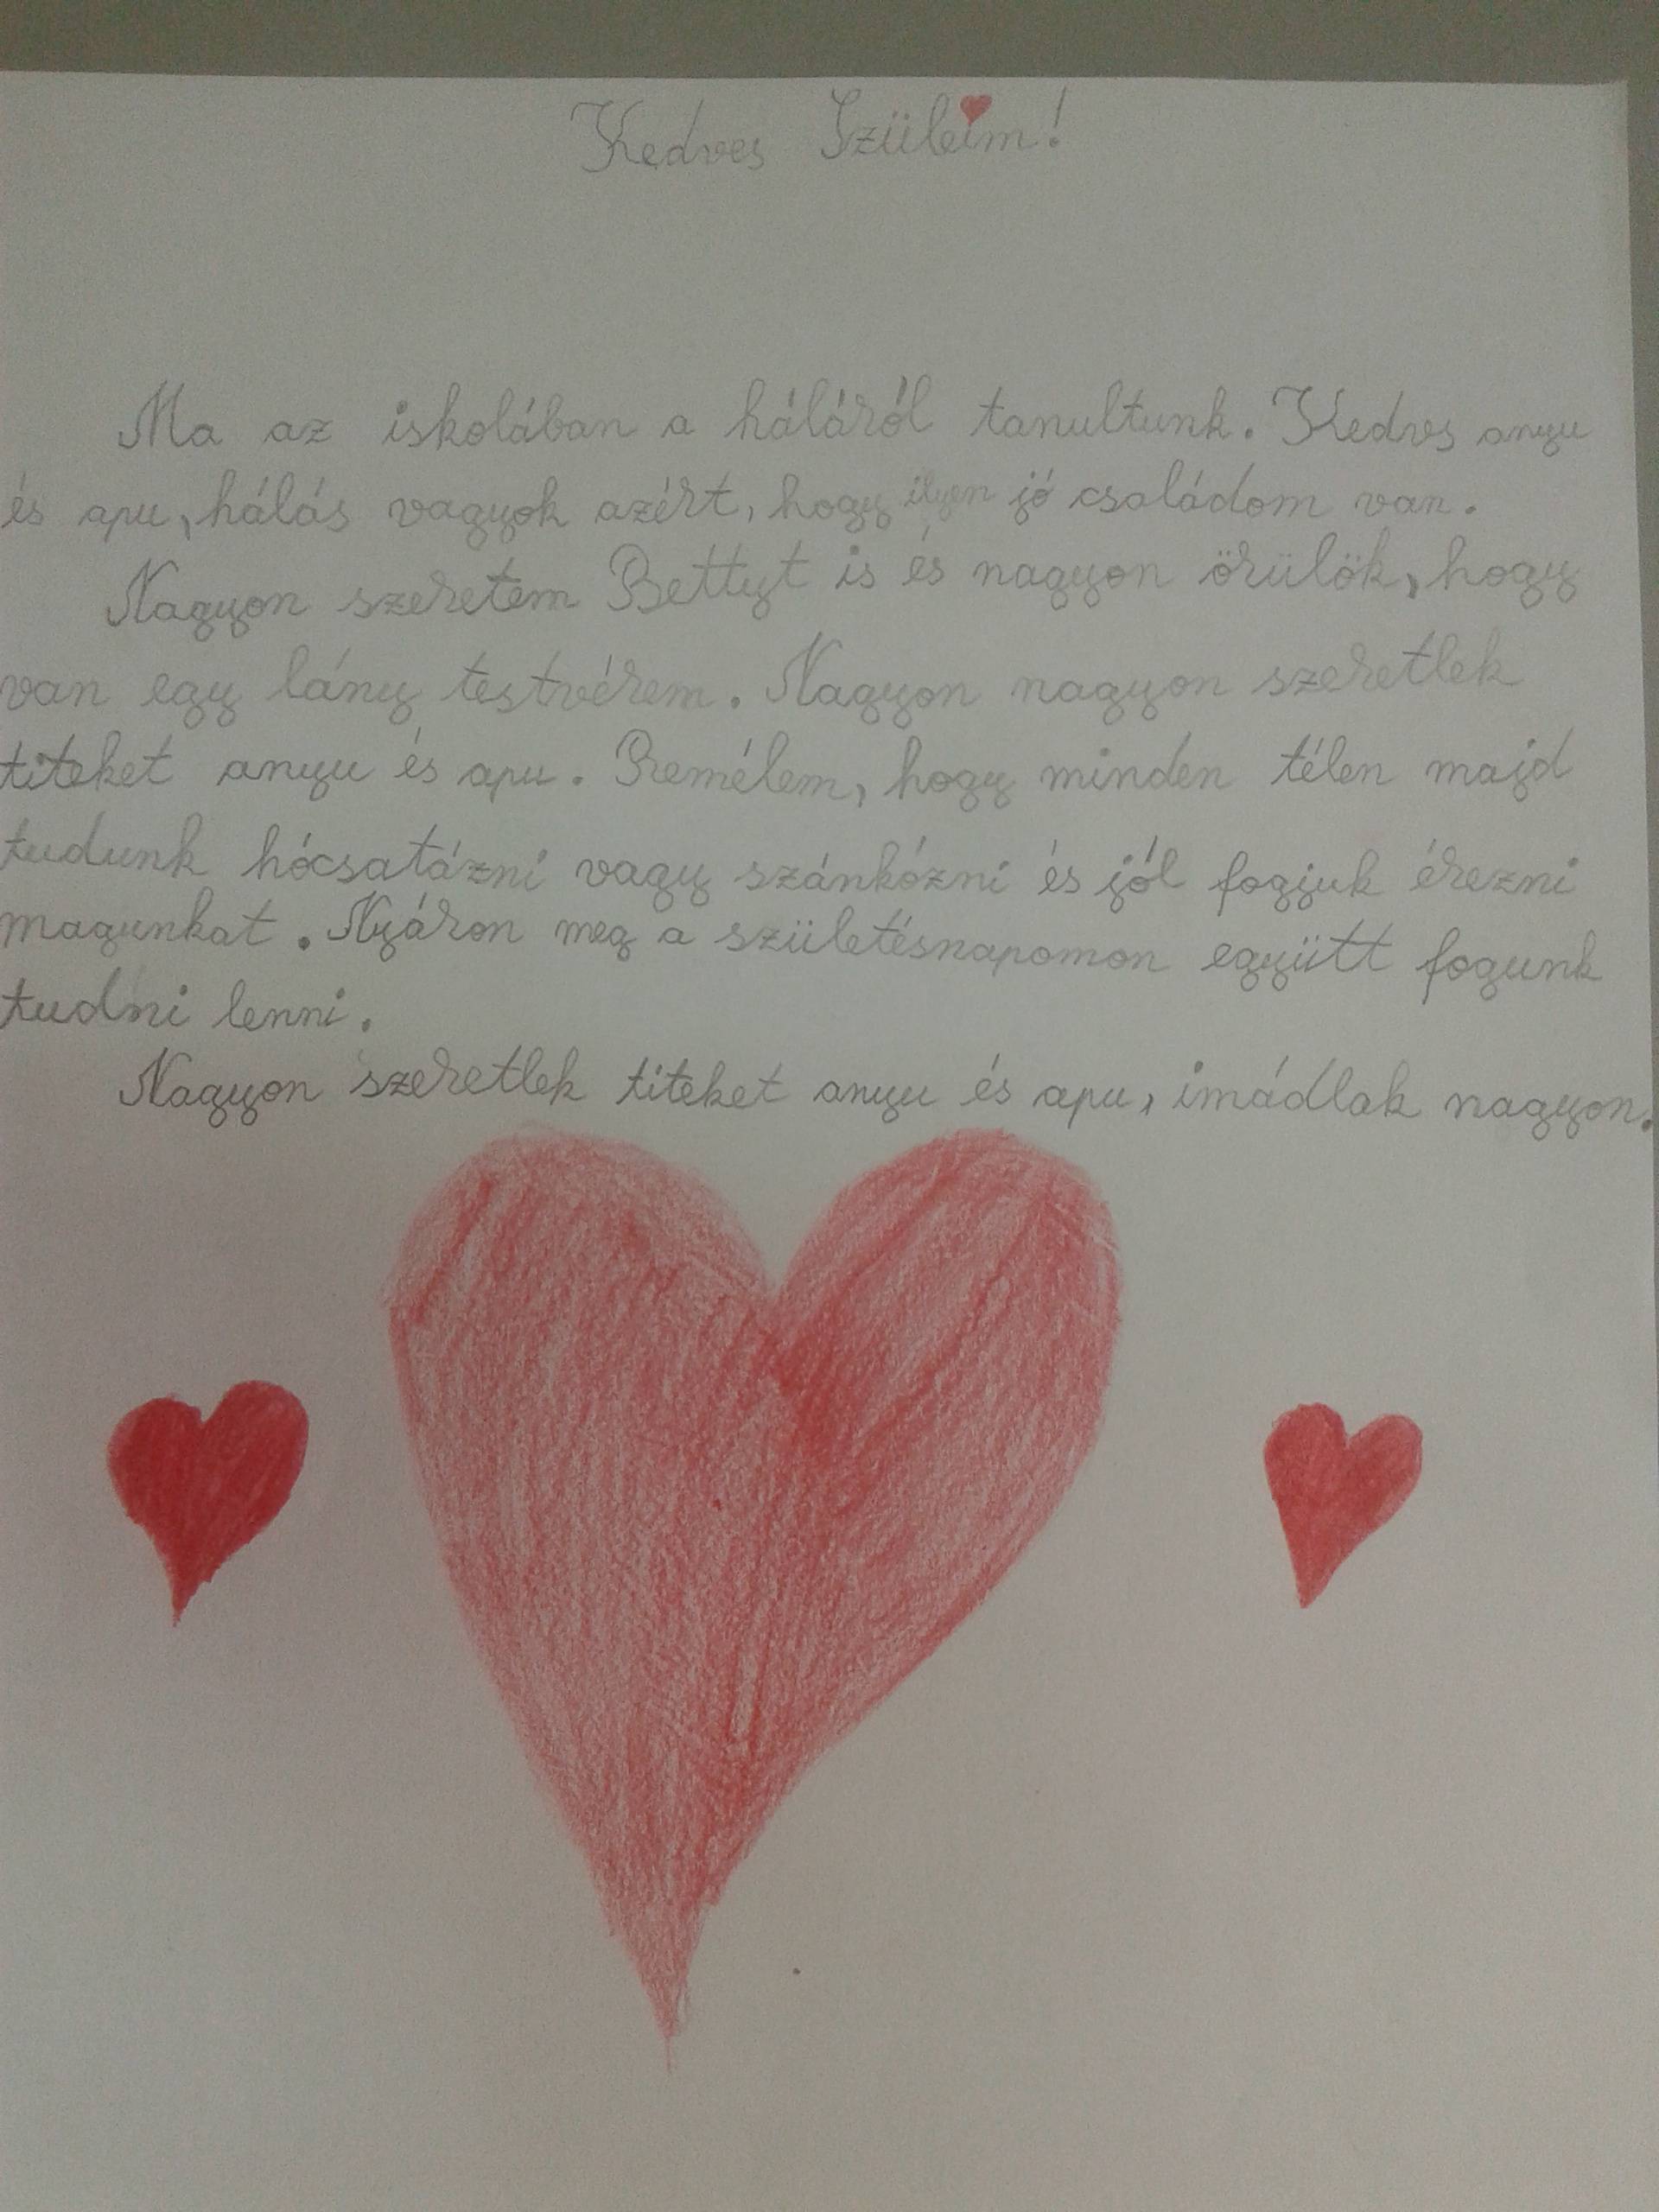 Kedves Szüleim!
Ma az iskolában a háláról tanultunk. Kedves anyu
és apu, hálás vagyok azért, hogy ilyen jó családom van.
Nagyon szeretem Bettyt is és nagyon örülök, hogy
van egy lány testvérem. Nagyon nagyon szeretlek
titeket anyu és apu. Remélem, hogy minden télen majd
tudunk hócsatázni vagy szánkózni és jól fogjuk érezni
magunkat. Nyáron meg a születésnapomon együtt fogunk
tudni lenni.
Nagyon szeretlek titeket anyu és apu, imádlak nagyon.